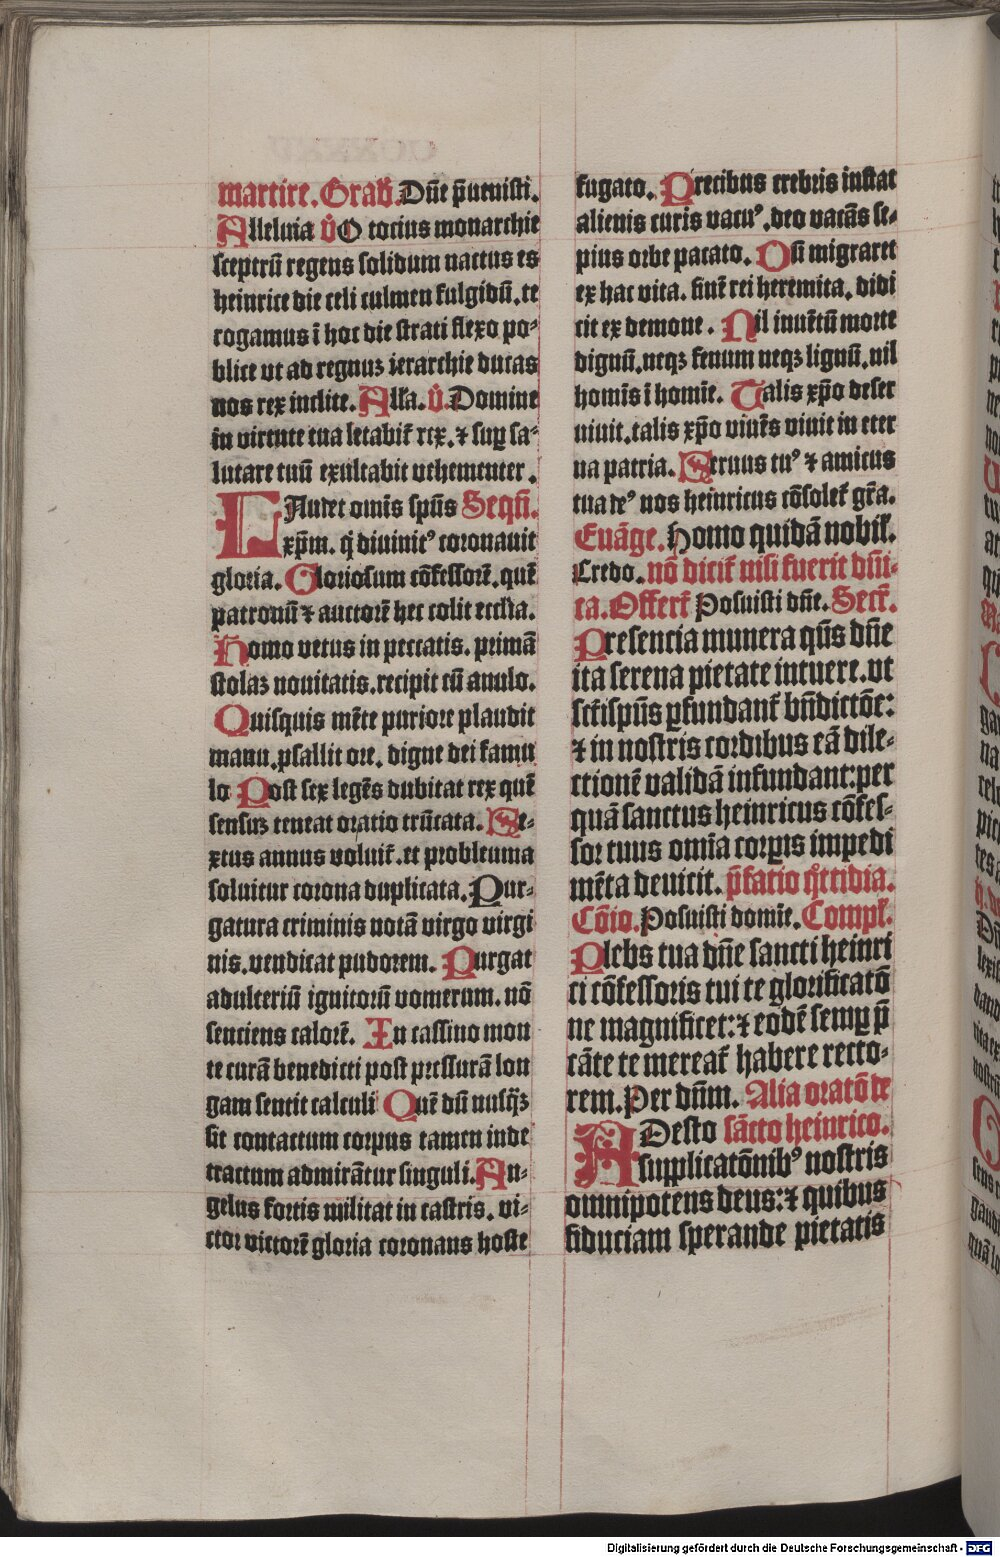 martire. Grad̄. Dñe p̄uenisti.
Alleluia v̊ O tocius monarchie
sceptrū regens solidum nactus es
heinrice die celi culmen fulgidū. te
rogamus ī hoc die strati flexo po-
blice vt ad regnuꝫ ierarchie ducas
nos rex inclite. Alł'a. v̊. Domine
in virtute tua letabit᷑ rex. ⁊ suꝑ sa-
lutare tuū exultabit vehementer.
LAudet omīs spūs Seqn̄.
xp̄m. q̇ diuinitꝰ coronauit
gloria. Gloriosum cōfessorē. quē
patronū ⁊ auctorē hec colit ecclīa.
Homo vetus in peccatis. primā
stolaꝫ nouitatis. recipit cū anulo.
Quisquis mēte puriore plaudit
manu. psallit ore. digne dei famu
lo Post sex legēs dubitat rex quē
sensuꝫ teneat oratio trūcata. Se-
xtus annus voluit᷑. et probleuma
soluitur corona duplicata. Pur-
gatura criminis notā virgo virgi
nis. vendicat pudorem. Purgat
adulteriū ignitorū vomerum. nō
senciens calorē. In cassino mon
te curā benedicti post pressurā lon
gam sentit calculi Quē dū nusq̄ꝫ
sit contactum corpus tamen inde
tractum admirātur singuli. An-
gelus fortis militat in castris. vi-
ctor victorē gloria coronans hoste
fugato. Precibus crebris instat
alienis curis vacuꝰ. deo vacās se-
pius orbe pacato. Osi migraret
ex hac vita. finē rei heremita. didi
cit ex demone. Nil inuētū morte
dignū. neqꝫ fenum neqꝫ lignū. nil
homīs ī homīe. Talis xp̄o deser
uiuit. talis xp̄o viuēs viuit in eter
na patria. Seruus tuꝰ ⁊ amicus
tua deꝰ nos heinricus cōsolet᷑ gr̄a.
Euāge. Homo quidā nobił.
Credo. nō dicit᷑ nisi fuerit dn̄i-
ca. Offert᷑ Posuisti dn̄e. Secr̄.
Presencia munera qūs dn̄e
ita serena pietate intuere. vt
sc̄tispūs ꝑfundant᷑ bn̄dictōe:
⁊ in nostris cordibus eā dile-
ctionē validā infundant: per
quā sanctus heinricus cōfes-
sor tuus omīa corꝑis impedi
mēta deuicit. p̄fatio q̇ttidia.
Cōio. Posuisti domīe. Compł.
Plebs tua dn̄e sancti heinri
ci cōfessoris tui te glorificatō
ne magnificet: ⁊ eodē semꝑ p̄
cāte te mereat᷑ habere recto-
rem. Per dn̄m. Alia oratō de
ADesto sācto heinrico.
supplicatōnibꝰ nostris
omnipotens deus: ⁊ quibus
fiduciam sperande pietatis
Digitalisierung gefördert durch die Deutsche Forschungsgemeinschaft - DFG